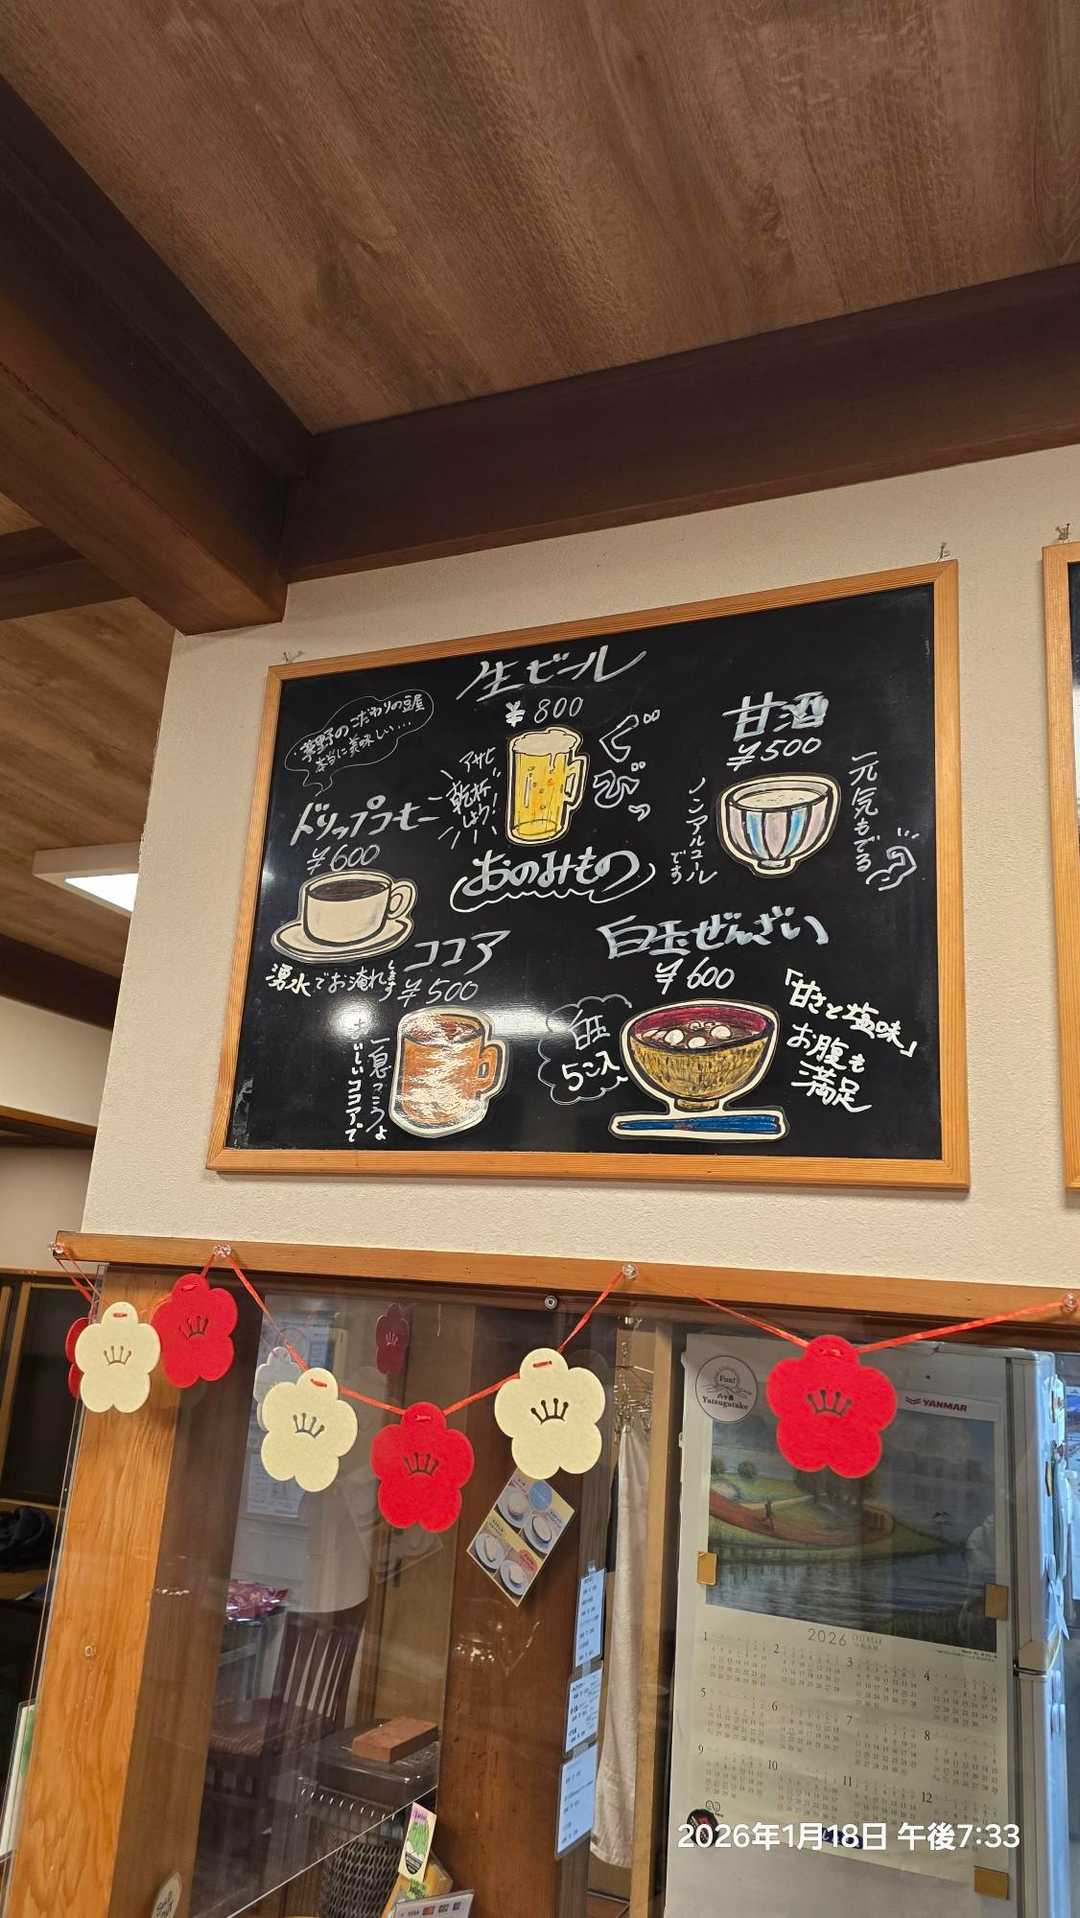 生ビール
¥800
アサヒ
乾杯
しよう!
ぐびっ
甘酒
¥500
ノンアルコール
です
元気もでる
こだわりの豆屋
本当に美味しい…
ドリップコーヒー
¥600
湧水でお淹れします
おのみもの
ココア
¥500
一息つこうよ
おいしいココアで
白玉ぜんざい
¥600
白玉
5こ入
「甘さと塩味」
お腹も
満足
Fun!
八ヶ岳
Yatsugatake
YANMAR
2026
1
2
3
4
5
6
7
8
9
10
11
12
2026年1月18日 午後7:33